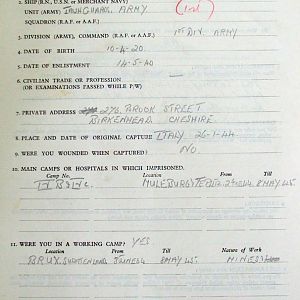 1. SHIP (R.N., U.S.N. OR MERCHANT NAVY)
UNIT (ARMY) GUARDS. ARMY
SQUADRON (R.A.F. OR A.A.F.)
3. DIVISION (ARMY), COMMAND (R.A.F. OR A.A.F.) 1ST DIV. ARMY
4. DATE OF BIRTH 10-4-20
5. DATE OF ENLISTMENT 14-5-40
6. CIVILIAN TRADE OR PROFESSION
(OR EXAMINATIONS PASSED WHILE P/W)
7. PRIVATE ADDRESS 276. BROOK STREET
BIRKENHEAD CHESHIRE
8. PLACE AND DATE OF ORIGINAL CAPTURE ITALY 26-1-44
9. WERE YOU WOUNDED WHEN CAPTURED? NO
10. MAIN CAMPS OR HOSPITALS IN WHICH IMPRISONED.
Camp No. Location From Till
8 MAY 45.
11. WERE YOU IN A WORKING CAMP? YES
Location From Till Nature of Work
BRUX. 8 MAY 45. MINES